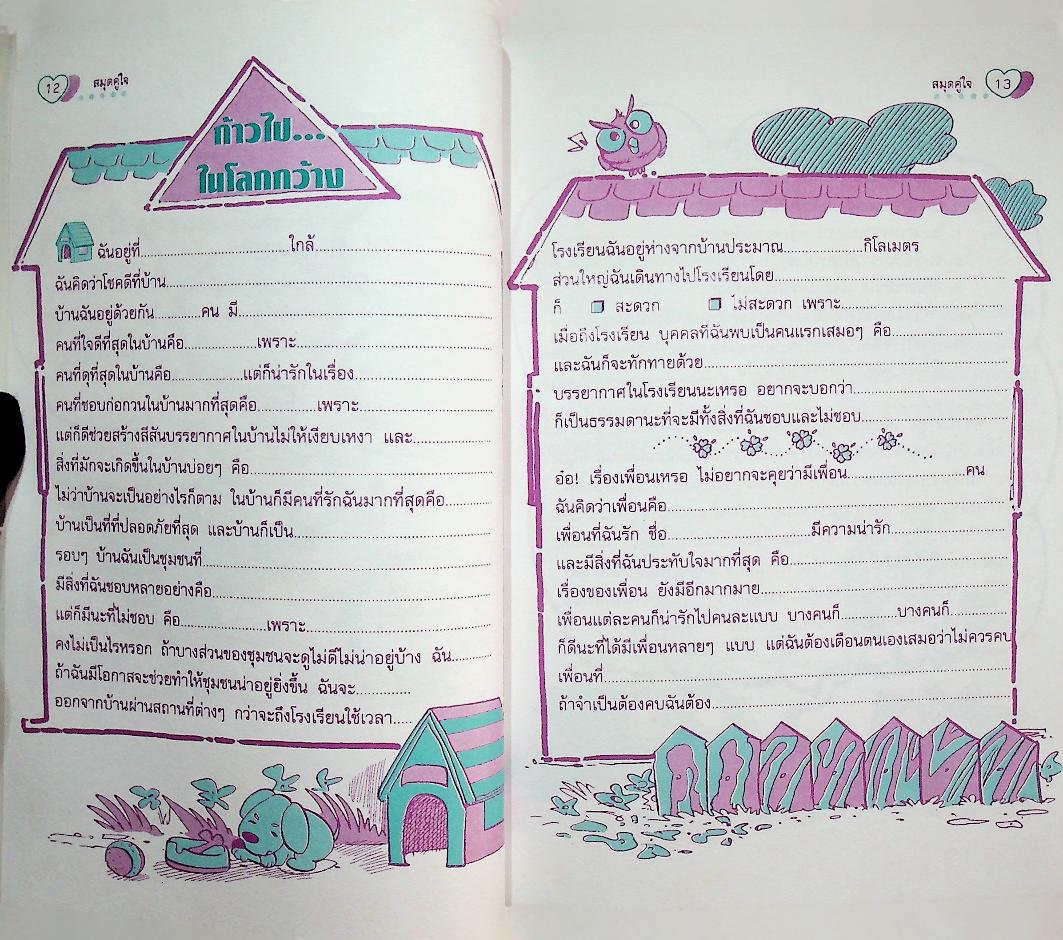 12 สมุดคู่ใจ
ก้าวไป...
ในโลกกว้าง
ฉันอยู่ที่..............................ใกล้....................................
ฉันคิดว่าโชคดีที่บ้าน....................................................................
บ้านฉันอยู่ด้วยกัน..........คน มี....................................................
คนที่ใจดีที่สุดในบ้านคือ...............เพราะ.......................................
คนที่ดุที่สุดในบ้านคือ...............แต่ก็น่ารักในเรื่อง............................
คนที่ชอบก่อกวนในบ้านมากที่สุดคือ............เพราะ...........................
แต่ก็ดีช่วยสร้างสีสันบรรยากาศในบ้านไม่ให้เงียบเหงา และ................
สิ่งที่มักจะเกิดขึ้นในบ้านบ่อยๆ คือ..................................................
ไม่ว่าบ้านจะเป็นอย่างไรก็ตาม ในบ้านก็มีคนที่รักฉันมากที่สุดคือ.........
บ้านเป็นที่ที่ปลอดภัยที่สุด และบ้านก็เป็น........................................
รอบๆ บ้านฉันเป็นชุมชนที่............................................................
มีสิ่งที่ฉันชอบหลายอย่างคือ.........................................................
แต่ก็มีนะที่ไม่ชอบ คือ..................เพราะ.....................................
คงไม่เป็นไรหรอก ถ้าบางส่วนของชุมชนจะดูไม่ดีไม่น่าอยู่บ้าง ฉัน........
ถ้าฉันมีโอกาสจะช่วยทำให้ชุมชนน่าอยู่ยิ่งขึ้น ฉันจะ............
ออกจากบ้านผ่านสถานที่ต่างๆ กว่าจะถึงโรงเรียนใช้เวลา....
สมุดคู่ใจ 13
โรงเรียนฉันอยู่ห่างจากบ้านประมาณ................กิโลเมตร
ส่วนใหญ่ฉันเดินทางไปโรงเรียนโดย..............................................
ก็ ❒ สะดวก ❒ ไม่สะดวก เพราะ................................
เมื่อถึงโรงเรียน บุคคลที่ฉันพบเป็นคนแรกเสมอๆ คือ.......................
และฉันก็จะทักทายด้วย..............................................................
บรรยากาศในโรงเรียนนะเหรอ อยากจะบอกว่า................................
ก็เป็นธรรมดานะที่จะมีทั้งสิ่งที่ฉันชอบและไม่ชอบ.............................
อ๋อ! เรื่องเพื่อนเหรอ ไม่อยากจะคุยว่ามีเพื่อน........................คน
ฉันคิดว่าเพื่อนคือ......................................................................
เพื่อนที่ฉันรัก ชื่อ..............................มีความน่ารัก.......................
และมีสิ่งที่ฉันประทับใจมากที่สุด คือ.............................................
เรื่องของเพื่อน ยังมีอีกมากมาย....................................................
เพื่อนแต่ละคนก็น่ารักไปคนละแบบ บางคนก็............บางคนก็............
ก็ดีนะที่ได้มีเพื่อนหลายๆ แบบ แต่ฉันต้องเตือนตนเองเสมอว่าไม่ควรคบ
เพื่อนที่....................................................................................
ถ้าจำเป็นต้องคบฉันต้อง..............................................................